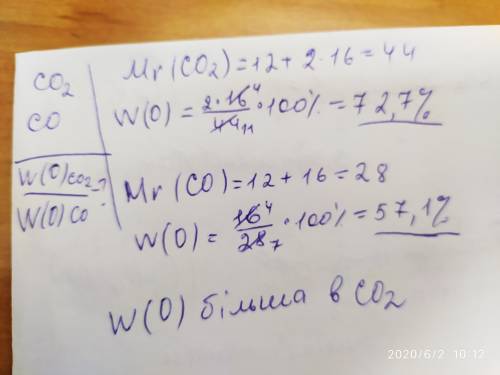 CO₂
CO
W(O)CO₂ - ?
W(O)CO
Mr(CO₂)=12+2·16=44
W(O) = 2·16⁴/44₁₁ ·100% = 72,7%
Mr(CO)=12+16=28
W(O) = 16⁴/28₇ ·100% = 57,1%
W(O) більша в CO₂
2020/6/2 10:12